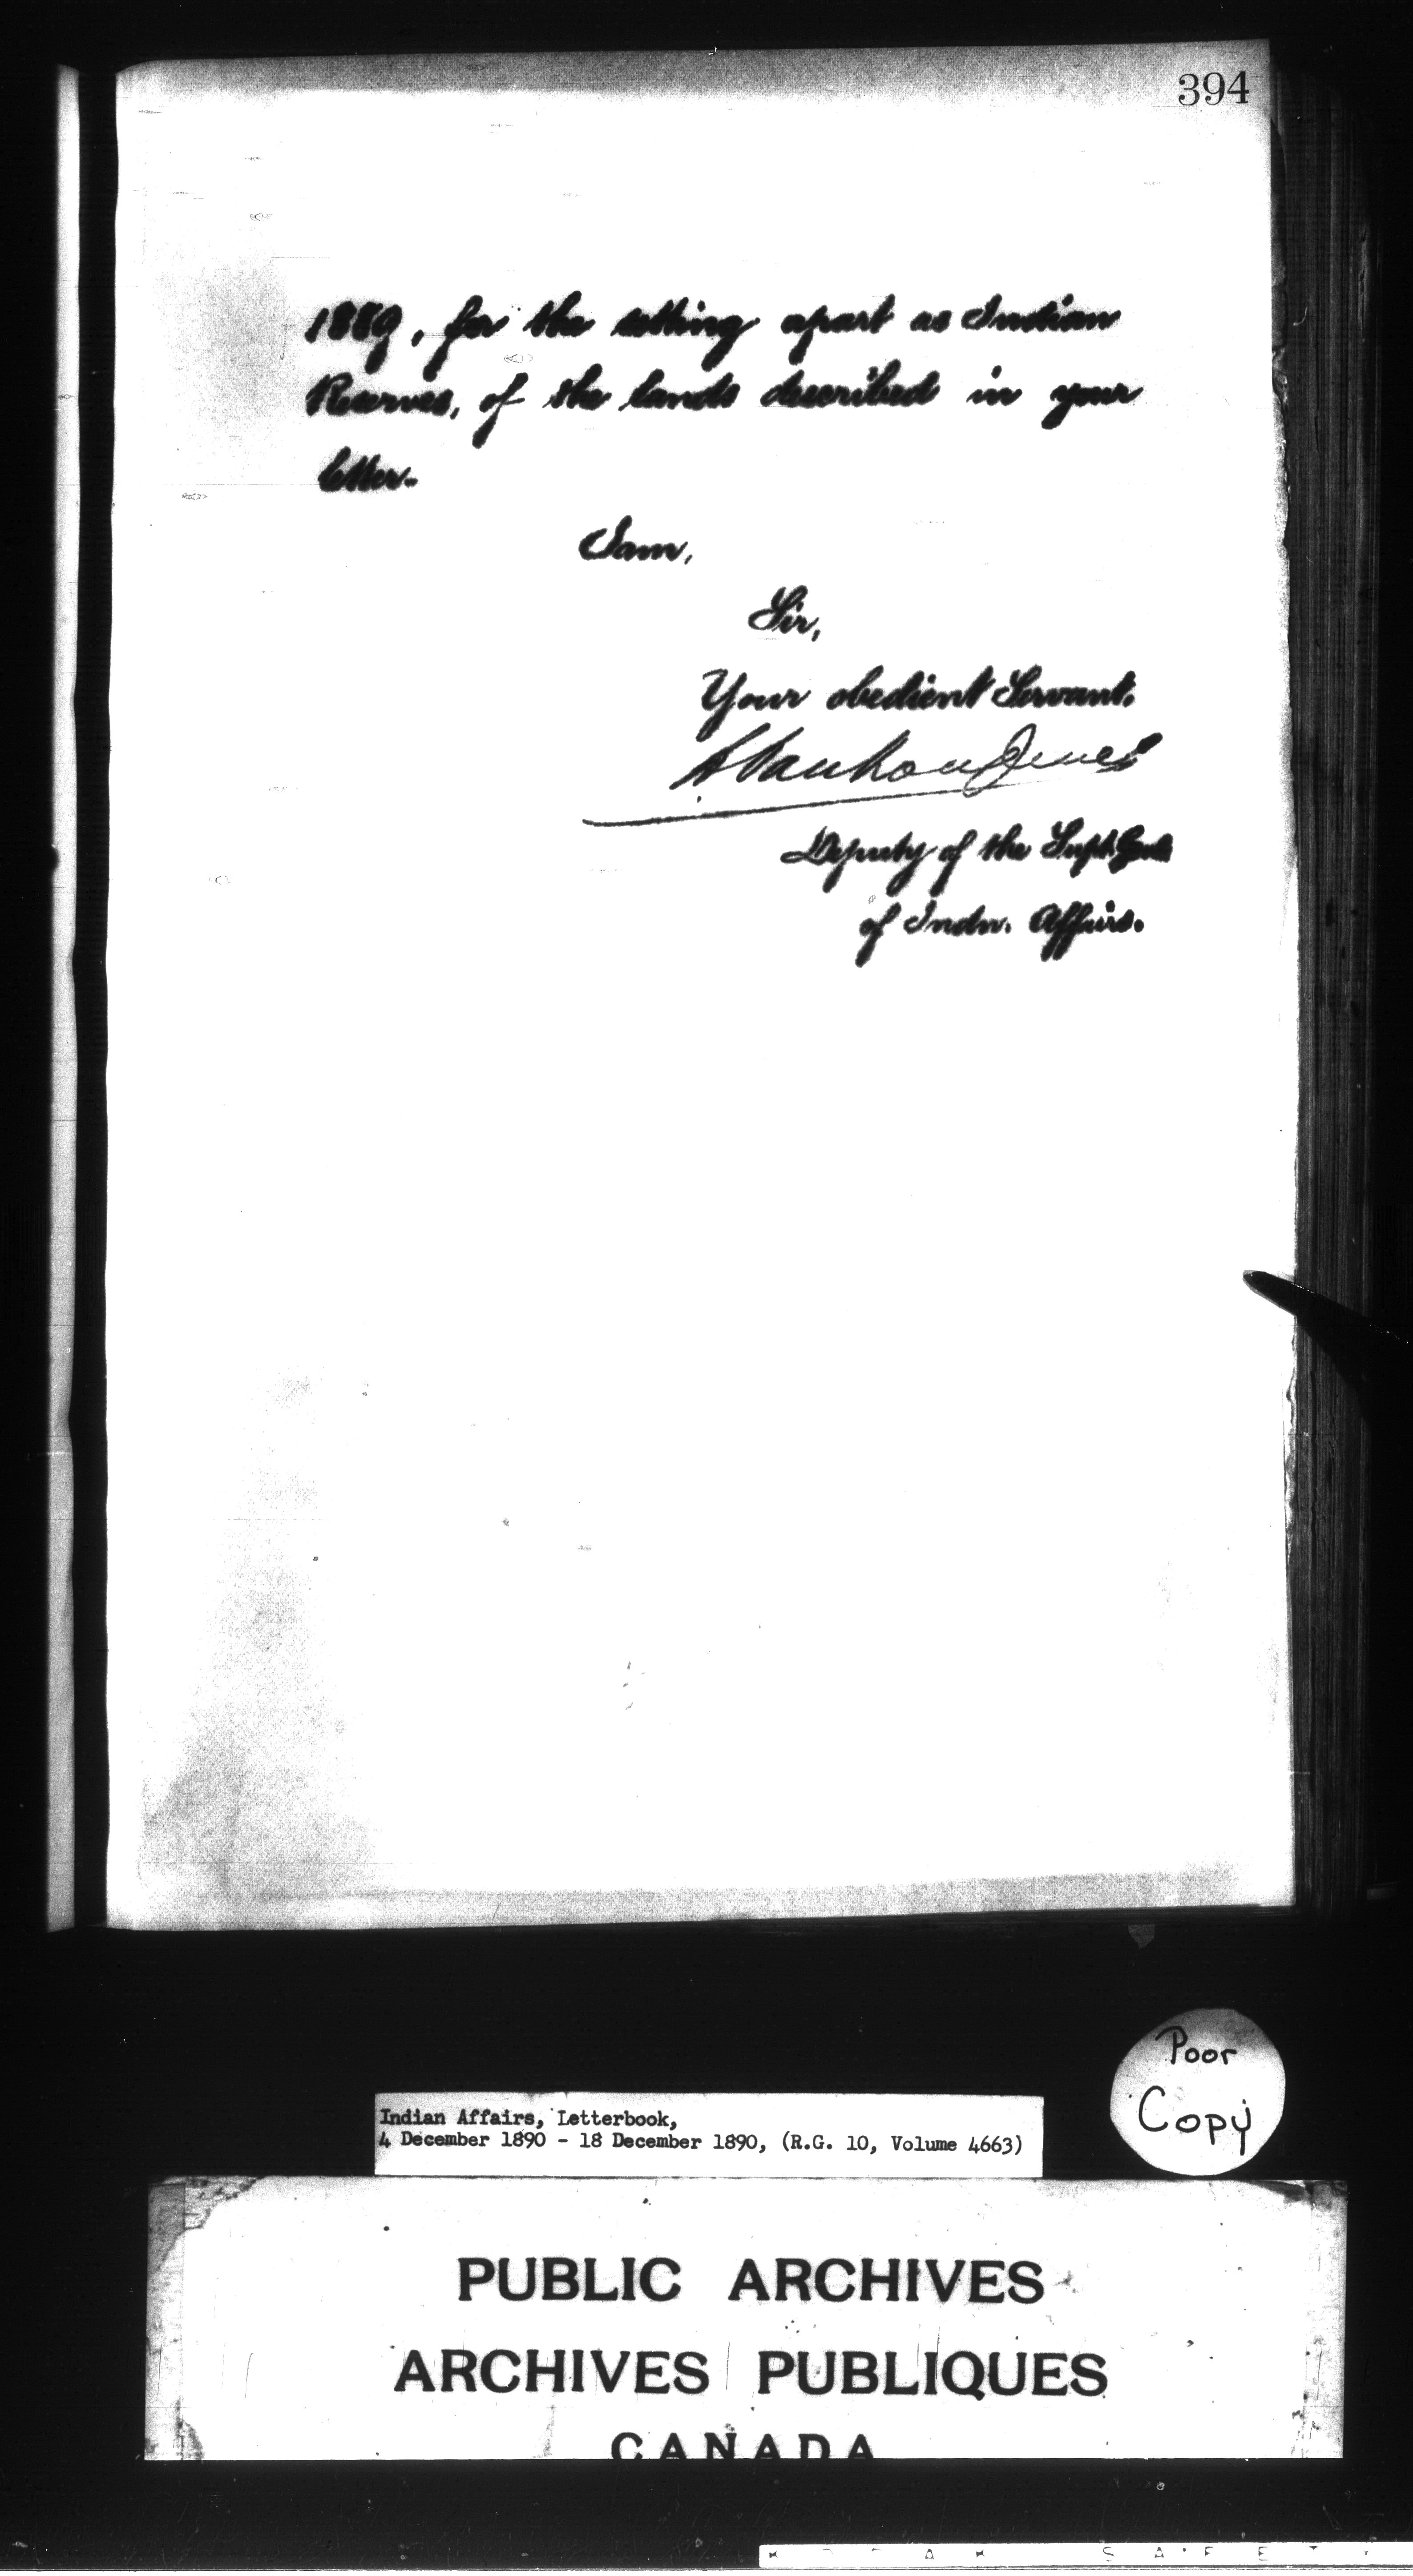 394
1889, for the setting apart as Indian
Reserves, of the lands described in your
letter.
I am,
Sir,
Your obedient Servant.
L Vankoughnet
Deputy of the Supt. Genl.
of Indn. Affairs.
Poor
Copy
Indian Affairs, Letterbook,
4 December 1890 - 18 December 1890, (R.G. 10, Volume 4663)
PUBLIC ARCHIVES
ARCHIVES PUBLIQUES
CANADA